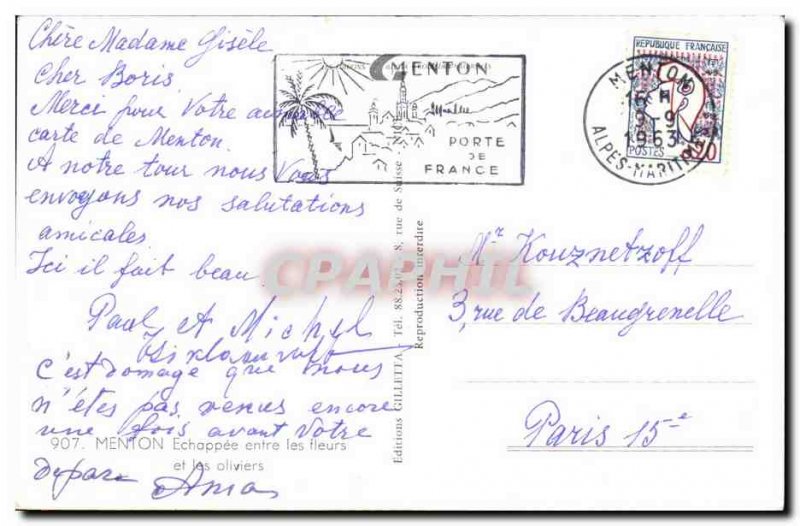 Chère Madame Gisèle
Cher Boris
Merci pour Votre aimable
carte de Menton.
A notre tour nous Vous
envoyons nos salutations
amicales
Ici il fait beau
Paul et Michel
c'est domage que nous
n'êtes pas venus encore
une fois avant Votre
depar
907. MENTON Echappée entre les fleurs
et les oliviers
Editions GILLETTA, Tél. 88.23.07 8, rue de Suisse
Reproduction interdite
MENTON
PORTE
DE
FRANCE
MENTON
15 H
9 9
1963
ALPES-MARITIMES
REPUBLIQUE FRANÇAISE
POSTES 0,20
Mr Kouznetzoff
3, rue de Beaugrenelle
Paris 15e
CPAPHIL